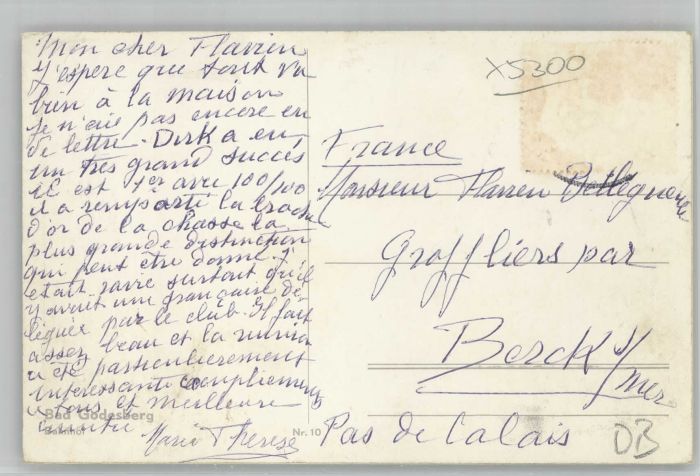 Mon cher Flavien
J'espere que tout va
bien à la maison
Je n'aie pas encore eu
de lettre. Dirk a eu
un tres grand succès
il est 1er avec 100/100
il a remporté la broche
d'or de la chasse la
plus grande distinction
qui peut être donné. J'
etait ravie surtout qu'il
y avait une française dé-
léguée par le club. Il fait
assez beau et la réunion
a été particulierement
interessante compliments
a tous et meilleure
Marie Therese
X5300
France
Monsieur Flavien
Groffliers par
Berck s/
mer
Pas de Calais
DB
Bad Godesberg
Bahnhof
Nr. 10